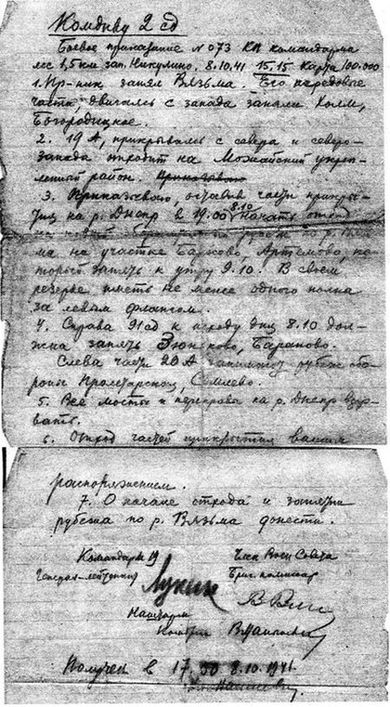 Комдиву 2 сд
Боевое приказание № 073 КП командарма
лес 1,5 км зап. Никулино. 8.10.41 15.15 Карта 100.000
1. Пр-ник занял Вязьма. Его передовые
части, двигаясь с запада заняли Холм,
Богородицкое.
2. 19 А, прикрываясь с севера и северо-
запада отходит на Можайский укреп-
ленный район.
3. Приказываю, оставив части прикры-
тия на р. Днепр в 19.00 8.10 начать отход
на р. Вязь-
ма на участке Артемово, ко-
торый занять к утру 9.10. В своем
резерве иметь не менее одного полка
за левым флангом.
4. Справа 91 сд к исходу дня 8.10 дол-
жна занять Бараново.
Слева части 20 А занимают рубеж обо-
роны Пролетарское, Семлево.
5. Все мосты и переправы на р. Днепр взор-
вать.
6. Отход частей прикрытия вашим
распоряжением.
7. О начале отхода и занятии
рубежа по р. Вязьма донести.
Командарм 19 Член Воен Совета
Генерал-лейтенант Бриг. комиссар
Лукин
Наштарм
Комбриг
Получен в 17 8.10.1941